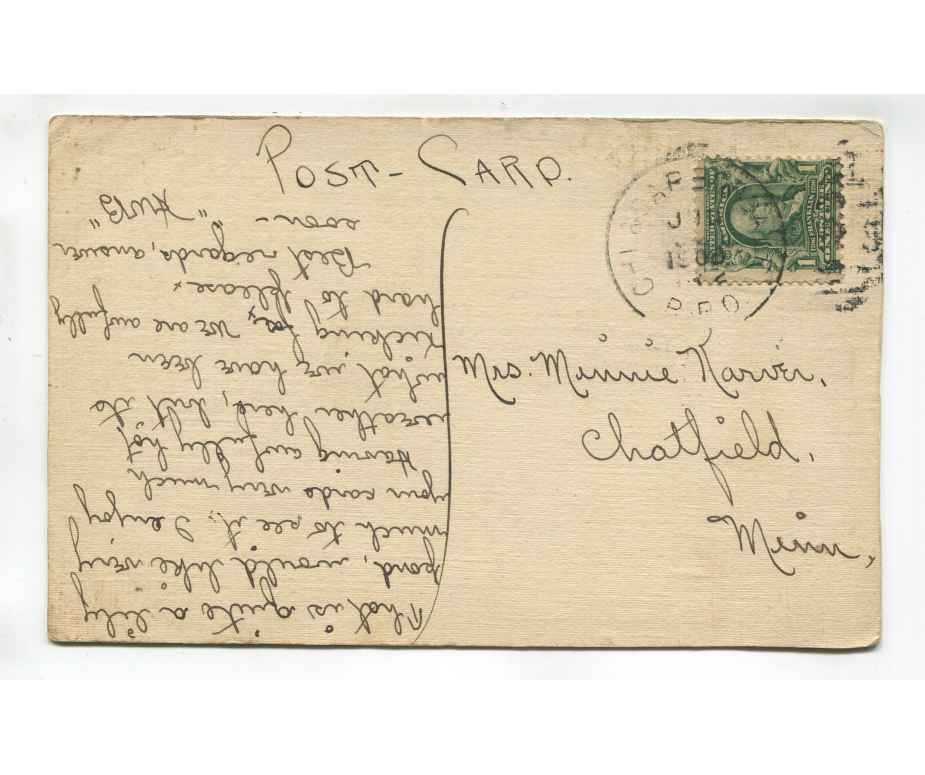 POST-CARD.
R.P.O.
1
1
Mrs. Minnie Karver,
Chatfield,
Minn,
That is quite a lily
pond, would like very
much to see it. I enjoy
your cards very much
Having awfully hot
weather here, but its
what we have been
kicking for. We are awfully
hard to please.
Best regards, answer
soon-